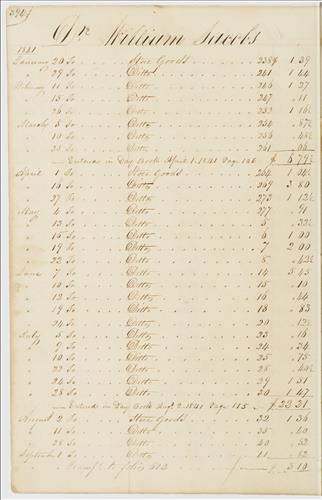 394
Dr William Jacobs
1841
January 20 To Store Goods 238 1 39
" 29 To Ditto 241 1 44
February 11 To Ditto 246 1 27
" 15 To Ditto 247 .11
" 26 To Ditto 252 1
March 5 To Ditto 254 .87½
" 10 To Ditto 256
" 25 To Ditto 261 .06
Entered in Day Book April 1. 1841 Page 126 $ 6 79½
April 1 To Store Goods 264 1
" 16 To Ditto 269 3 80
" 27 To Ditto 273 1 12½
May 4 To Ditto 277 .91
" 13 To Ditto 5
" 15 To Ditto 6 1 00
" 19 To Ditto 7 2 00
" 22 To Ditto 8
June 7 To Ditto 14 5 43
" 10 To Ditto 15 .10
" 12 To Ditto 16 .44
" 19 To Ditto 18 .83
" 24 To Ditto 20
July 5 To Ditto 23 .16
" 9 To Ditto 24
" 10 To Ditto 25 .75
" 22 To Ditto 28
" 24 To Ditto 29 1 31
" 28 To Ditto 30 1 47
Entered in Day Book Augt 2. 1841 Page 115 $ 22 31
August 2 To Store Goods 32 1 36
" 11 To Ditto 35 .40
" 28 To Ditto 40 .52
September 1 To Ditto 41 .82
Transfd to folio $ 3 10